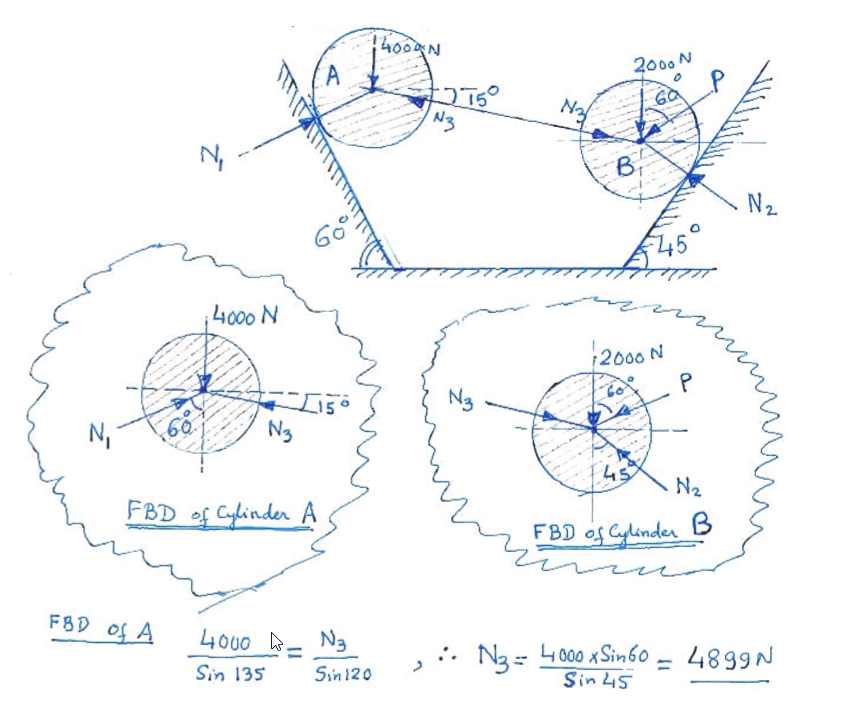 4000N
A
15°
N3
N1
60°
2000N
60°
P
N3
B
N2
45°
4000 N
15°
60°
N1
N3
FBD of Cylinder A
2000 N
60°
P
N3
45°
N2
FBD of Cylinder B
FBD of A
4000 / Sin 135 = N3 / Sin 120 , ∴ N3 = 4000 x Sin 60 / Sin 45 = 4899 N